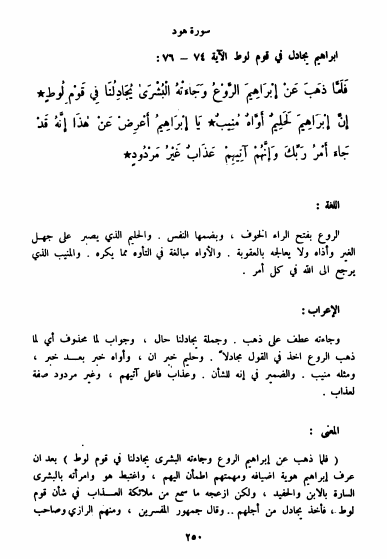 سورة هود
ابراهيم يجادل في قوم لوط الآية ٧٤ – ٧٦ :
فَلَمَّا ذَهَبَ عَنْ إِبْرَاهِيمَ الرَّوْعُ وَجَاءَتْهُ الْبُشْرَىٰ يُجَادِلُنَا فِي قَوْمِ لُوطٍ ★
إِنَّ إِبْرَاهِيمَ لَحَلِيمٌ أَوَّاهٌ مُنِيبٌ ★ يَا إِبْرَاهِيمُ أَعْرِضْ عَنْ هٰذَا إِنَّهُ قَدْ
جَاءَ أَمْرُ رَبِّكَ وَإِنَّهُمْ آتِيهِمْ عَذَابٌ غَيْرُ مَرْدُودٍ ★
اللغة :
الروع بفتح الراء الخوف ، وبضمها النفس . والحليم الذي يصبر على جهل
الغير وأذاه ولا يعالجه بالعقوبة . والأواه مبالغة في التأوه مما يكره . والمنيب الذي
يرجع الى الله في كل أمر .
الإعراب :
وجاءته عطف على ذهب . وجملة يجادلنا حال ، وجواب لما محذوف أي لما
ذهب الروع اخذ في القول مجادلاً . وحليم خبر ان ، وأواه خبر بعد خبر ،
ومثله منيب . والضمير في إنه للشأن . وعذاب فاعل آتيهم ، وغير مردود صفة
لعذاب .
المعنى :
( فلما ذهب عن إبراهيم الروع وجاءته البشرى يجادلنا في قوم لوط ) بعد ان
عرف إبراهيم هوية اضيافه ومهمتهم اطمأن اليهم ، واغتبط هو وامرأته بالبشرى
السارة بالابن والحفيد ، ولكن ازعجه ما سمع من ملائكة العذاب في شأن قوم
لوط ، فأخذ يجادل من أجلهم .. وقال جمهور المفسرين ، ومنهم الرازي وصاحب
٢٥٠